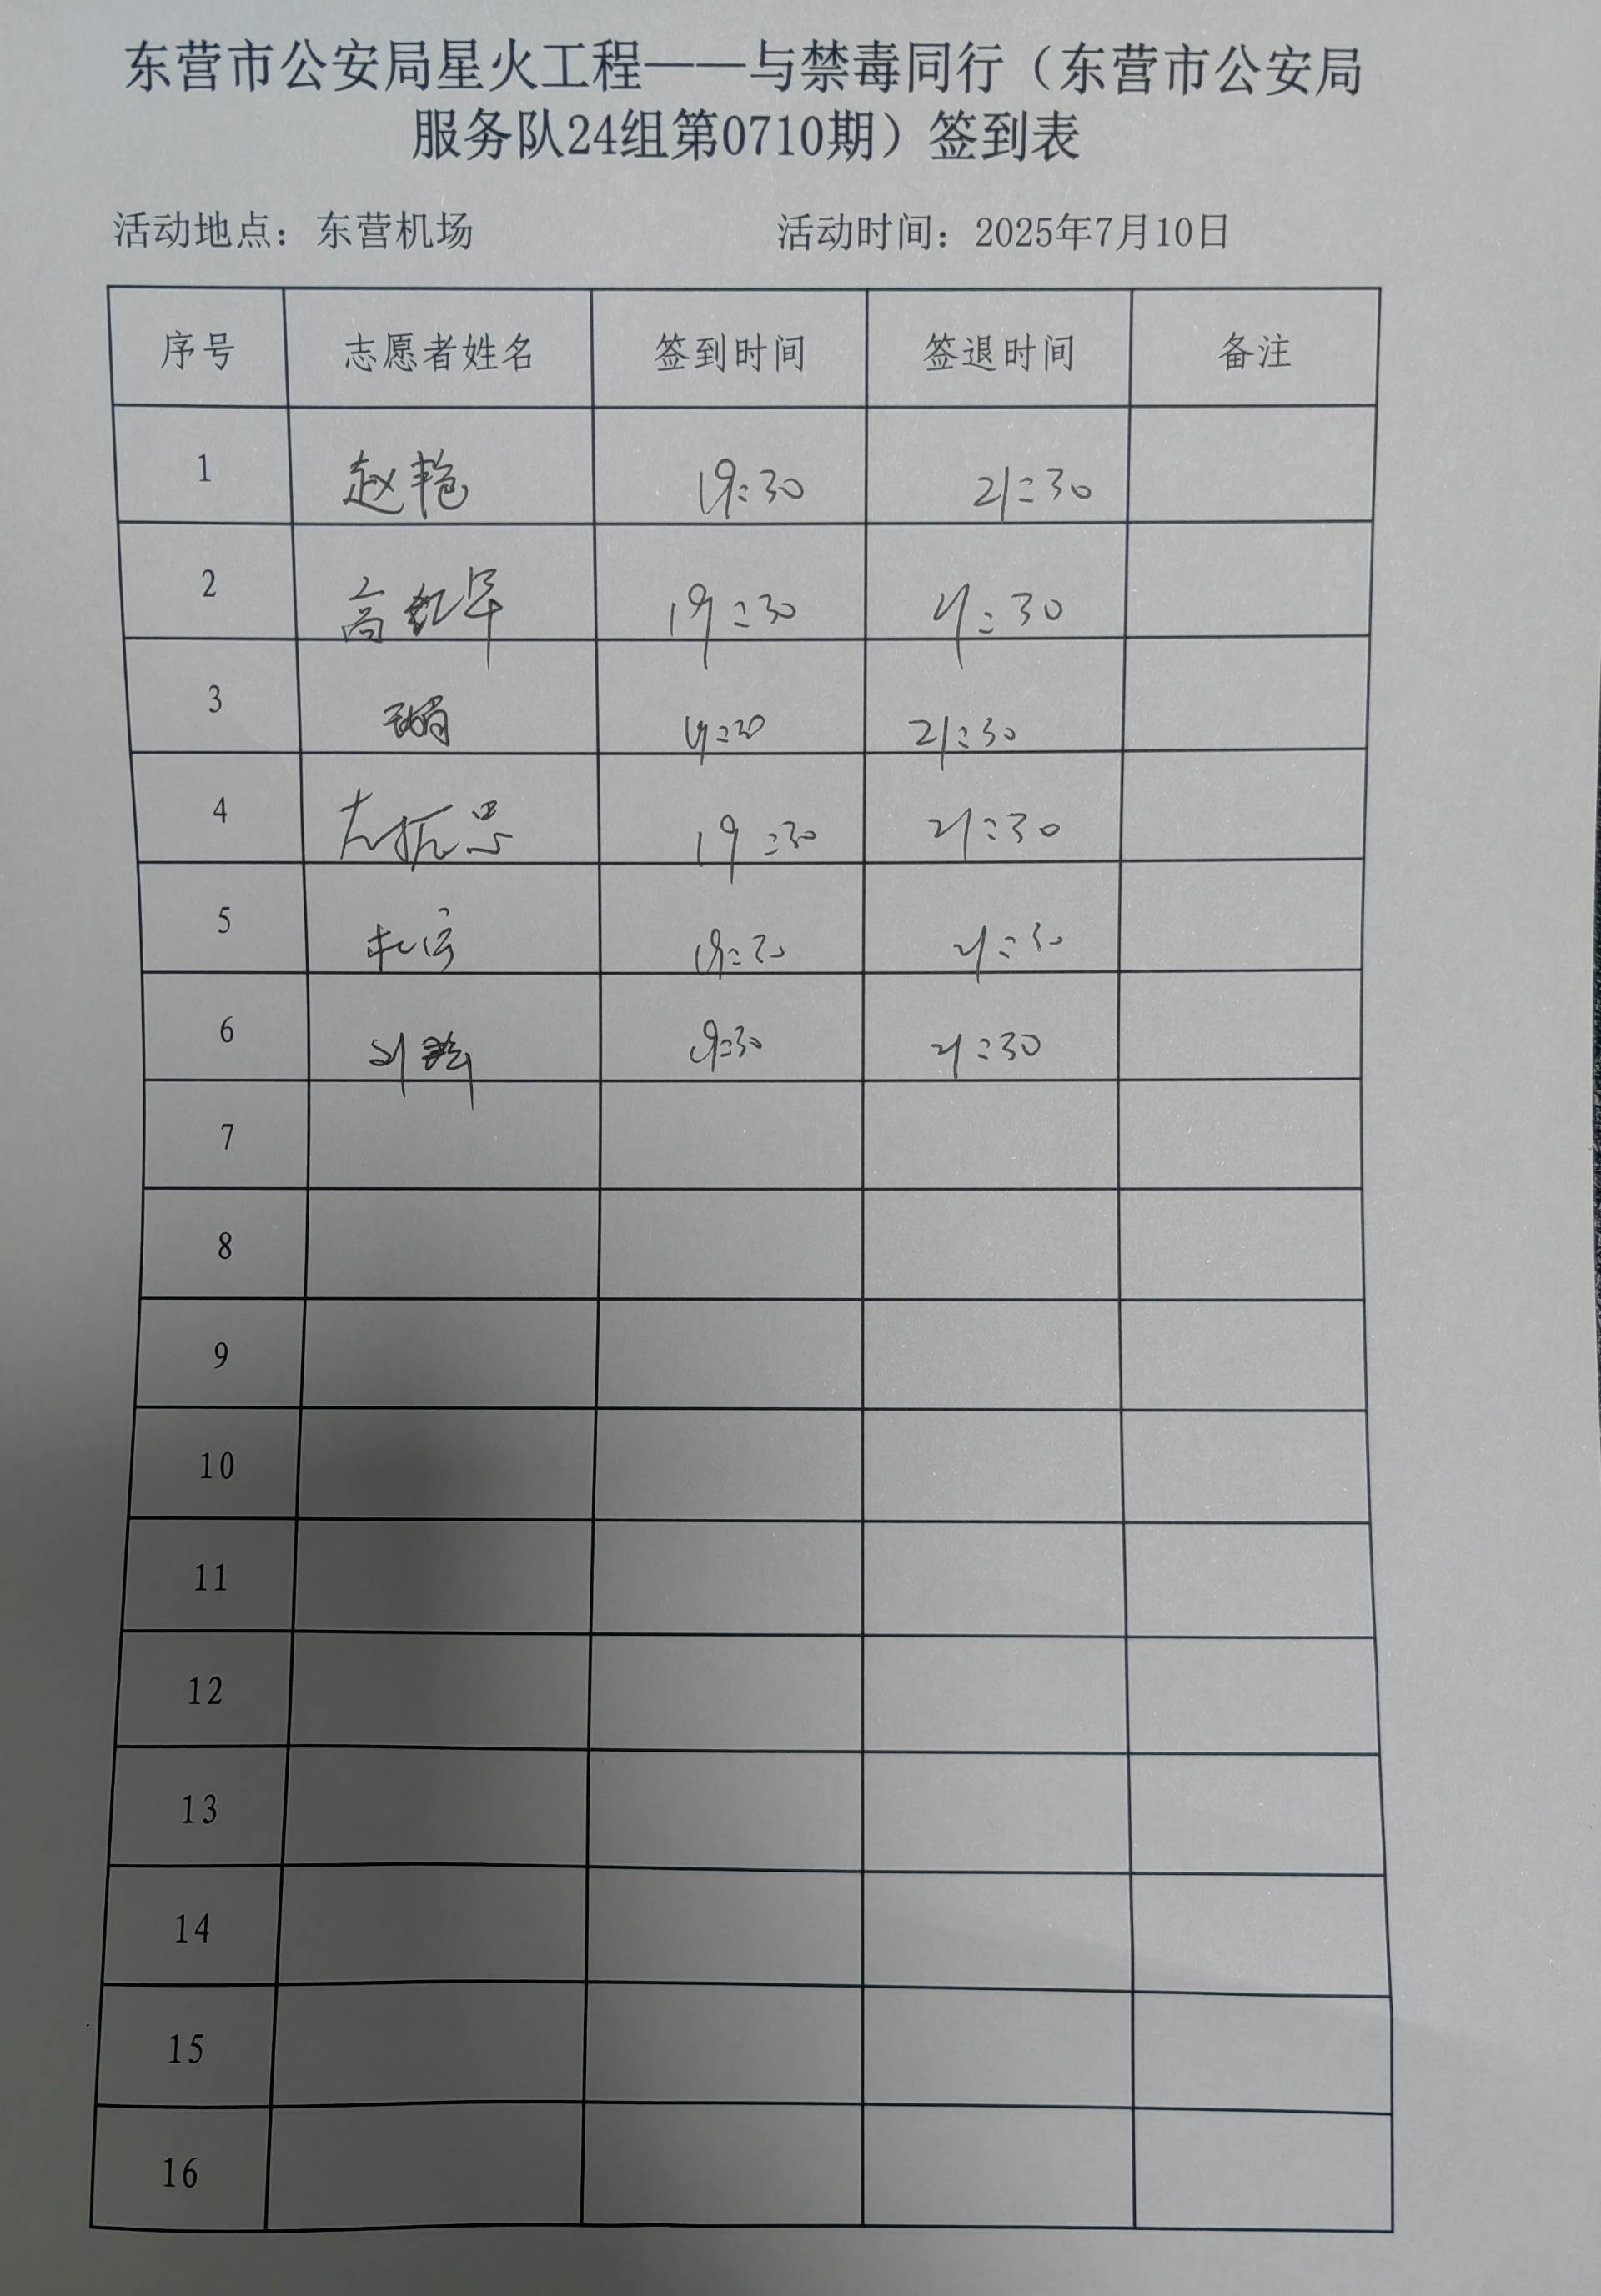 东营市公安局星火工程——与禁毒同行（东营市公安局
服务队24组第0710期）签到表
活动地点：东营机场 活动时间：2025年7月10日
序号 志愿者姓名 签到时间 签退时间 备注
1 赵艳 19:30 21:30
2 高红军 19:30 21:30
3 19:30 21:30
4 19:30 21:30
5 19:30 21:30
6 刘 19:30 21:30
7
8
9
10
11
12
13
14
15
16